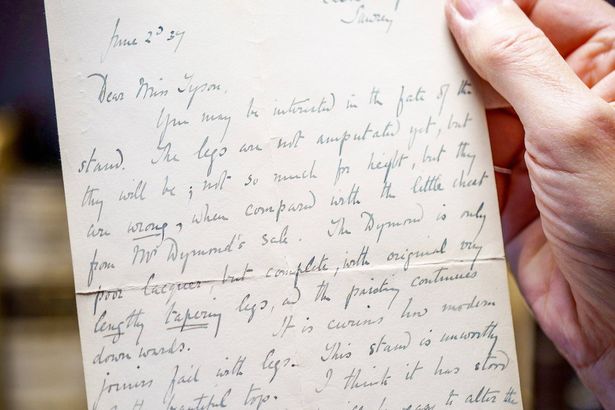 Sawrey
June 2d 37
Dear Miss Tyson,
You may be interested in the fate of the
stand. The legs are not amputated yet, but
they will be; not so much for height, but they
are wrong, when compared with the little chest
from Mrs Dymond's sale. The Dymond is only
poor lacquer but complete, with original very
lengthy tapering legs, and the painting continues
downwards. It is curious how modern
joiners fail with legs. This stand is unworthy
beautiful tops. I think it has stood
to alter the